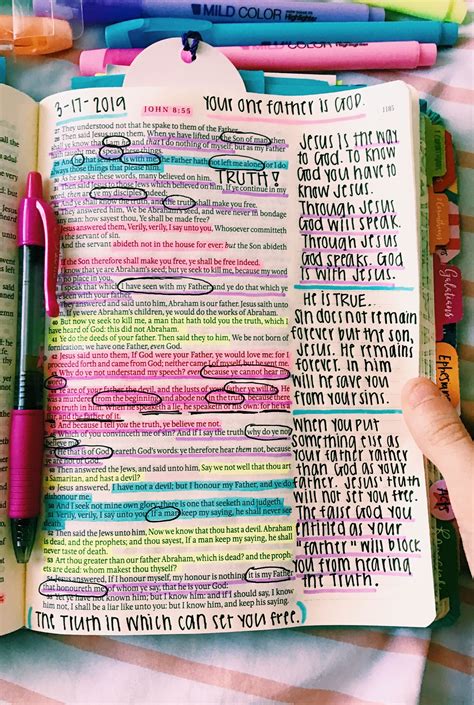 MILD COLOR
MILD COLOR
3-17-2019
JOHN 8:55
YOUR ONE FATHER IS GOD.
1185
27 They understood not that he spake to them of the Father.
28 Then said Jesus unto them, When ye have lifted up the Son of man then
shall ye know that I am he and that I do nothing of myself; but as my Father
hath taught me, I speak these things.
29 And he that sent me is with me: the Father hath not left me alone; for I do
always those things that please him.
TRUTH!
30 As he spake these words, many believed on him.
31 Then said Jesus to those Jews which believed on him, If ye continue in my
word, then are ye my disciples indeed;
32 And ye shall know the truth, and the truth shall make you free.
33 They answered him, We be Abraham's seed, and were never in bondage
to any man: how sayest thou, Ye shall be made free?
34 Jesus answered them, Verily, verily, I say unto you, Whosoever committeth
sin is the servant of sin.
35 And the servant abideth not in the house for ever: but the Son abideth
36 If the Son therefore shall make you free, ye shall be free indeed.
37 I know that ye are Abraham's seed; but ye seek to kill me, because my word
hath no place in you.
38 I speak that which I have seen with my Father: and ye do that which ye
have seen with your father.
39 They answered and said unto him, Abraham is our father. Jesus saith unto
them, If ye were Abraham's children, ye would do the works of Abraham.
40 But now ye seek to kill me, a man that hath told you the truth, which I
have heard of God: this did not Abraham.
41 Ye do the deeds of your father. Then said they to him, We be not born of
fornication; we have one Father, even God.
42 Jesus said unto them, If God were your Father, ye would love me: for I
proceeded forth and came from God; neither came I of myself, but he sent me.
43 Why do ye not understand my speech? even because ye cannot hear
my word.
44 Ye are of your father the devil, and the lusts of your father ye will do. He
was a murderer from the beginning, and abode not in the truth, because there is
no truth in him. When he speaketh a lie, he speaketh of his own: for he is a liar,
and the father of it.
45 And because I tell you the truth, ye believe me not.
46 Which of you convinceth me of sin? And if I say the truth, why do ye not
believe me?
47 He that is of God heareth God's words: ye therefore hear them not, because
ye are not of God.
48 Then answered the Jews, and said unto him, Say we not well that thou art
a Samaritan, and hast a devil?
49 Jesus answered, I have not a devil; but I honour my Father, and ye do
dishonour me.
50 And I seek not mine own glory: there is one that seeketh and judgeth.
51 Verily, verily, I say unto you, If a man keep my saying, he shall never see
death.
52 Then said the Jews unto him, Now we know that thou hast a devil. Abraham
is dead, and the prophets; and thou sayest, If a man keep my saying, he shall never
taste of death.
53 Art thou greater than our father Abraham, which is dead? and the prophets
are dead: whom makest thou thyself?
54 Jesus answered, If I honour myself, my honour is nothing: it is my Father
that honoureth me; of whom ye say, that he is your God:
55 Yet ye have not known him; but I know him: and if I should say, I know
him not, I shall be a liar like unto you: but I know him, and keep his saying.
THE TRUTH IN WHICH CAN SET YOU FREE.
JESUS IS THE WAY
TO GOD. TO KNOW
GOD YOU HAVE TO
KNOW JESUS.
THROUGH JESUS
GOD WILL SPEAK.
THROUGH JESUS
GOD SPEAKS. GOD
IS WITH JESUS.
HE IS TRUE.
SIN DOES NOT REMAIN
FOREVER BUT THE SON,
JESUS. HE REMAINS
FOREVER. IN HIM
HE WILL SAVE YOU
FROM YOUR SINS.
WHEN YOU PUT
SOMETHING ELSE AS
YOUR FATHER RATHER
THAN GOD AS YOUR
FATHER. JESUS' TRUTH
WILL NOT SET YOU FREE.
THE FALSE GOD YOU
ENTITLED AS YOUR
"FATHER" WILL BLOCK
YOU FROM HEARING
THE TRUTH.
Galatians